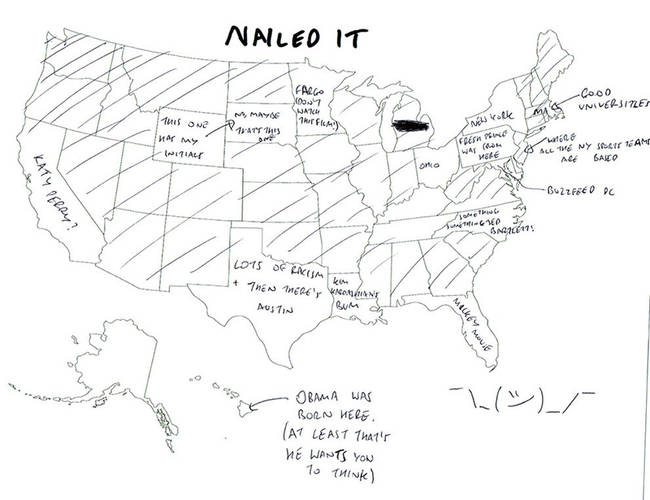 NAILED IT
FARGO
(DON'T
WATCH
THIS FILM!)
THIS ONE
HAS MY
INITIALS
NO, MAYBE
THAT'S THIS
ONE
KATY PERRY?
NEW YORK
FRESH PRINCE
WAS FROM
HERE
OHIO
MA
GOOD
UNIVERSITIES
WHERE
ALL THE NY SPORTS TEAMS
ARE BASED
BUZZFEED DC
SOMETHING
SOMETHING JED
BARTLETT!
LOTS OF RACISM
+ THEN THERE'S
AUSTIN
KIM
KARDASHIAN'S
BUM
MICKEY MOUSE
OBAMA WAS
BORN HERE.
(AT LEAST THAT'S
HE WANTS YOU
TO THINK)
¯\_(ツ)_/¯